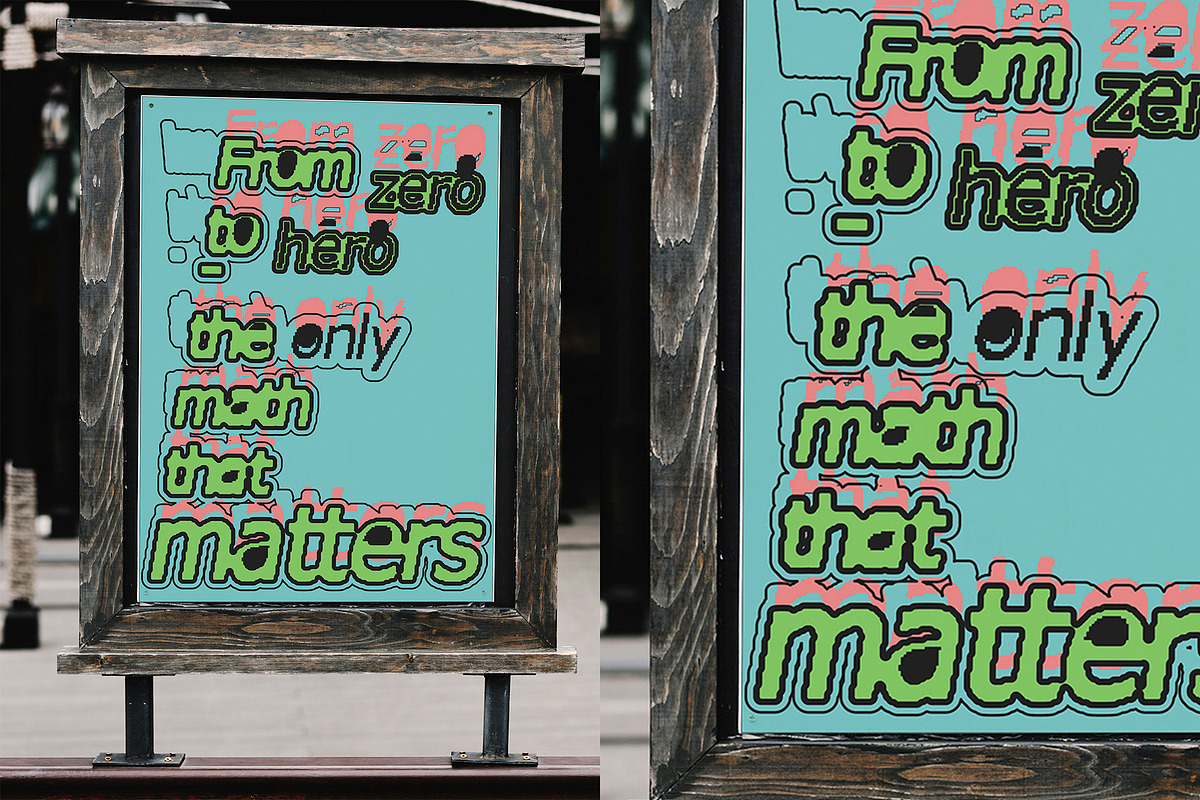 From zero
to hero
the only
math
that
matters
From zero
to hero
the only
math
that
matters